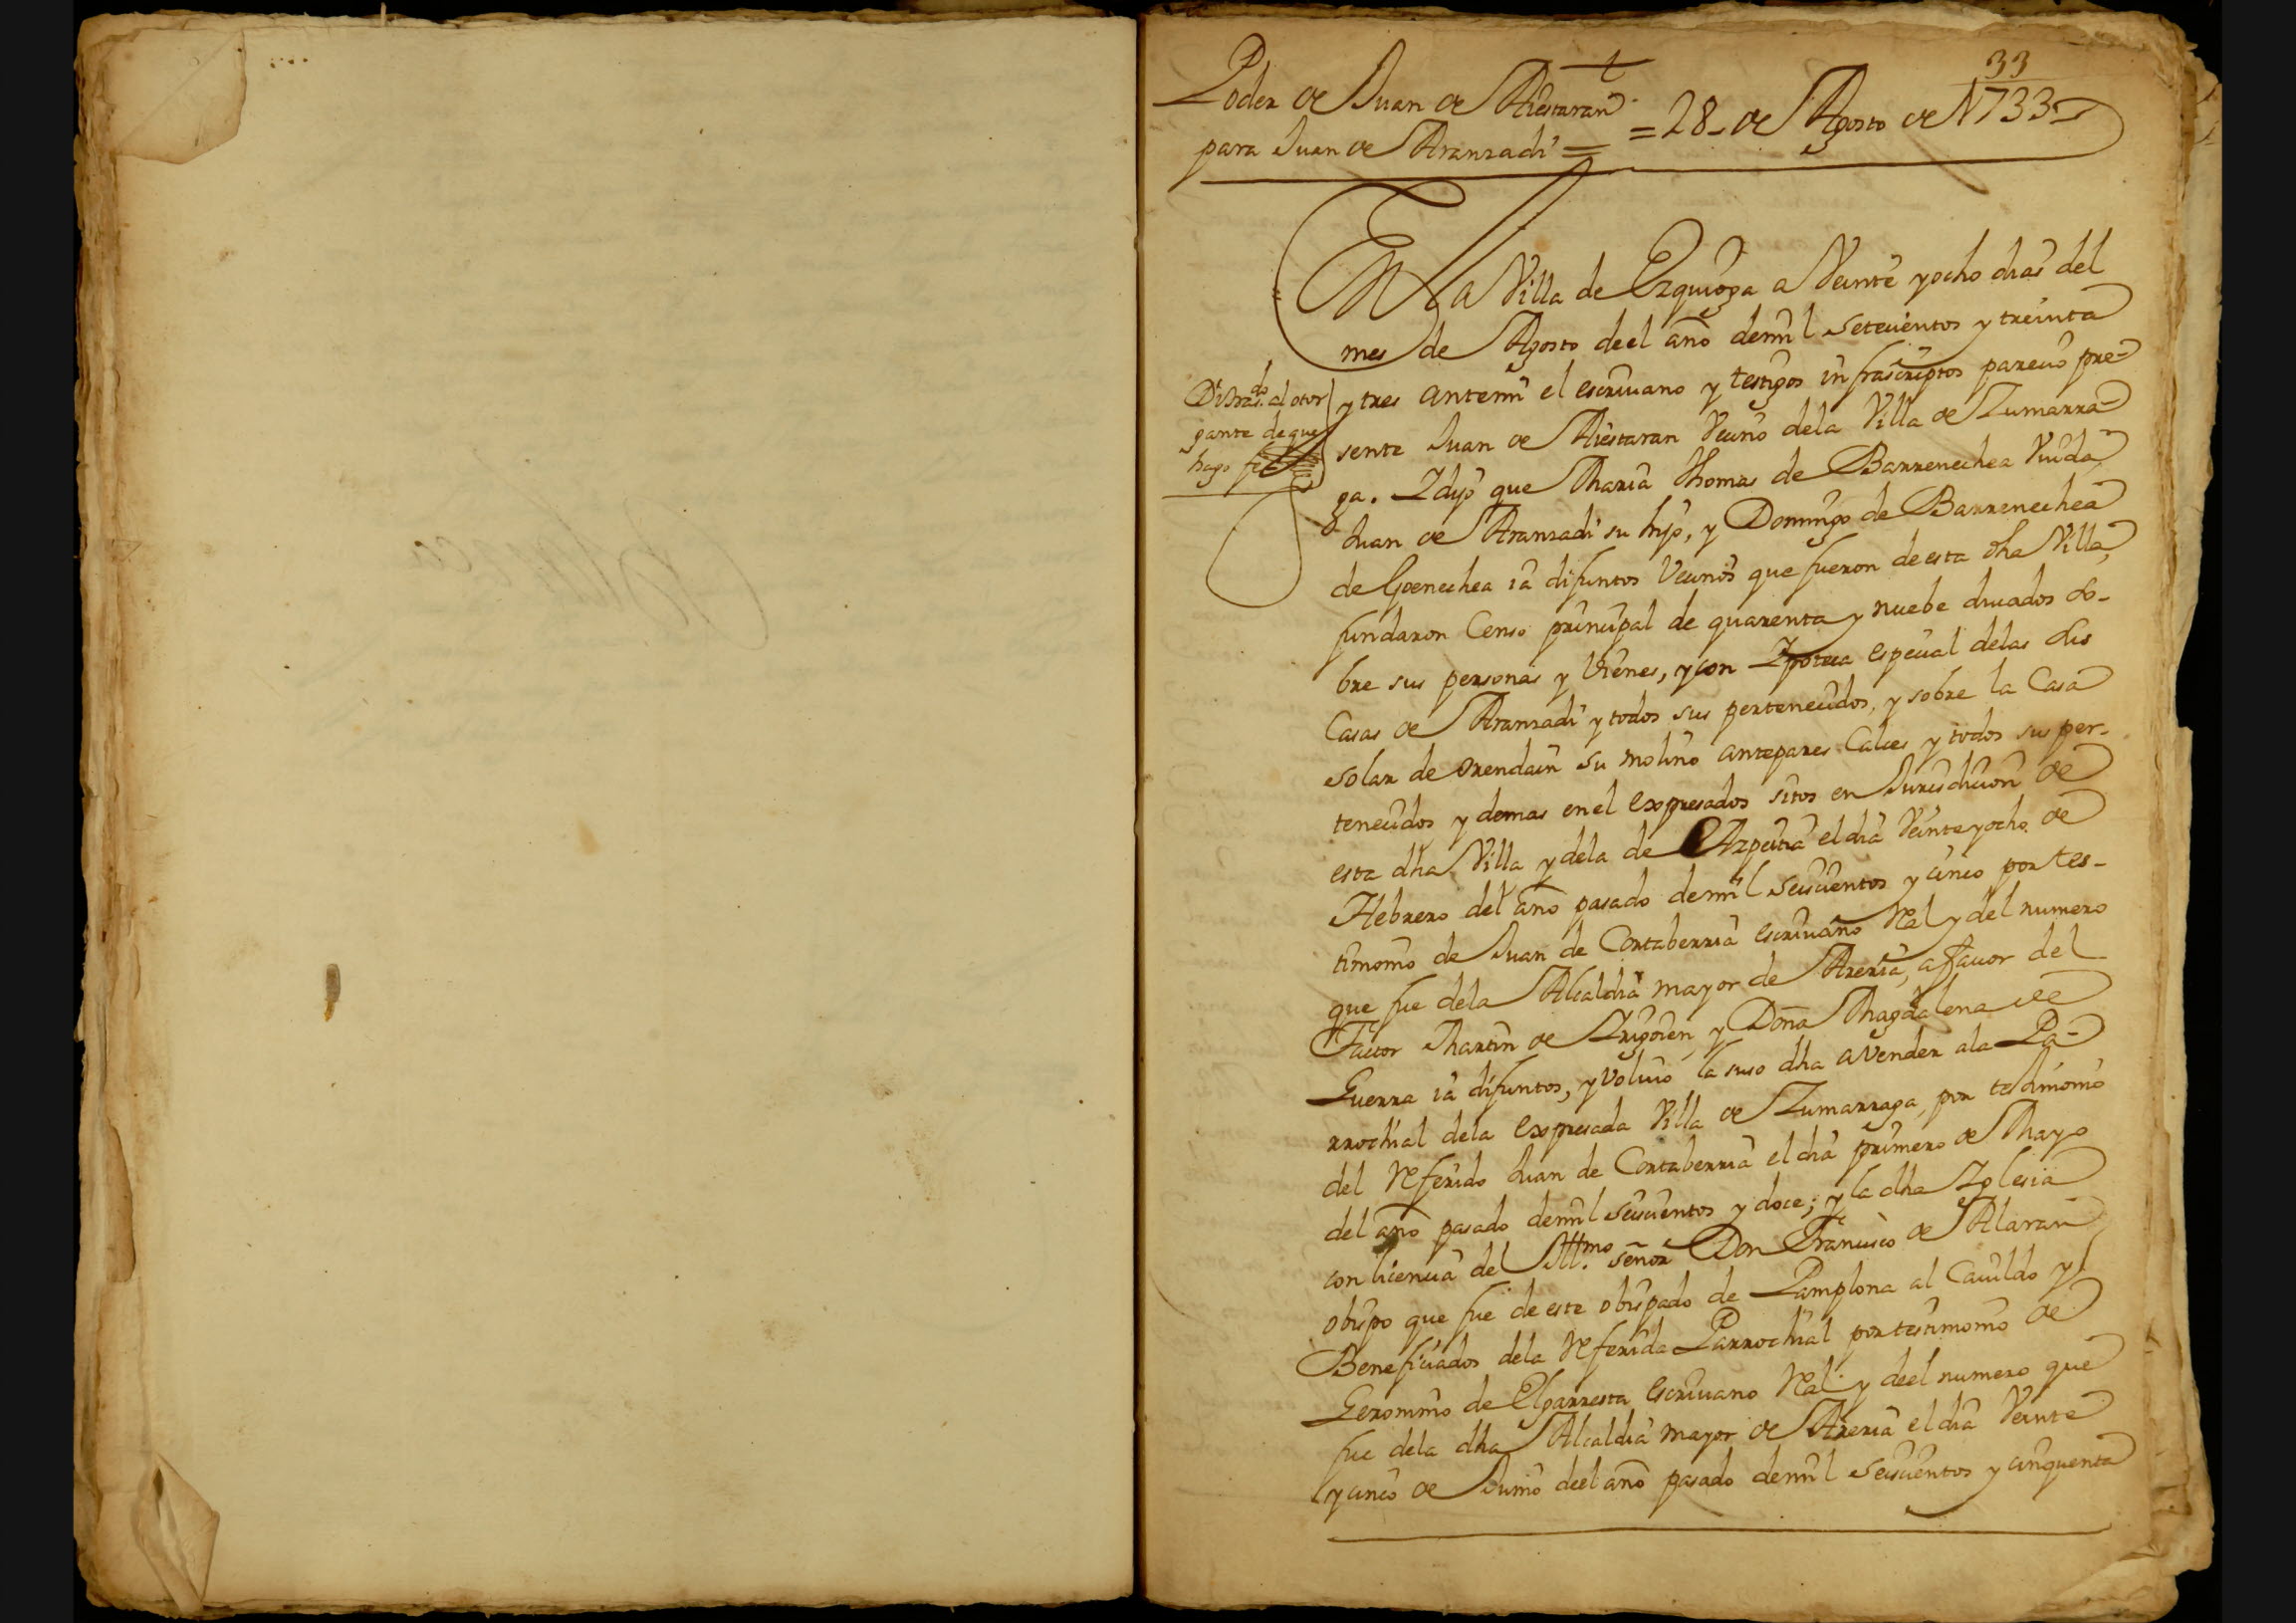 33
Poder de Juan de Aiestaran
para Juan de Aranzadi = = 28 de Agosto de 1733
En la Villa de Ezquioga a Veinte y ocho dias del
mes de Agosto de el año de mil setecientos y treinta
y tres ante mi el escriuano y testigos infrascriptos parecio pre-
sente Juan de Aiestaran Vecino de la Villa de Zumarra-
ga. Y dijo que Maria Thomas de Barrenechea Viuda
Juan de Aranzadi su hijo, y Domingo de Barrenechea
de Goenechea ia difuntos Vecinos que fueron de esta dha Villa,
fundaron Censo principal de quarenta y nuebe ducados so-
bre sus personas y Vienes, y con Ypoteca especial de las dos
Casas de Aranzadi y todos sus pertenecidos, y sobre la Casa
solar de Orendain su molino anteparas Calces y todos sus per-
tenecidos y demas en el expresados sitos en Jurisdicion de
esta dha Villa y de la de Azpeitia el dia Veinte y ocho de
Hebrero del año pasado de mil seiscientos y cinco por tes-
timonio de Juan de Cortaberria escriuano Real y del numero
que fue de la Alcaldia mayor de Areria, a fauor del
Factor Martin de Irigoien, y Doña Magdalena de
Guerra ia difuntos, y voluio la suso dha a Vender a la Pa-
rrochial de la expresada Villa de Zumarraga, por testimonio
del Referido Juan de Cortaberria el dia primero de Mayo
del año pasado de mil seiscientos y doce; y la dha Yglesia
con licencia del Illmo. señor Don Francisco de Alaran
obispo que fue de este obispado de Pamplona al Cauildo y
Beneficiados de la Referida Parrochial por testimonio de
Geronimo de Elgarresta escriuano Real y de el numero que
fue de la dha Alcaldia mayor de Areria el dia Veinte
y cinco de Junio de el año pasado de mil seiscientos y cinquenta
al otor
gante de que
hago fe